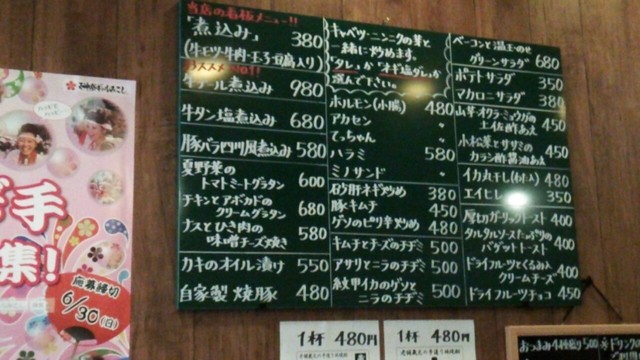 当店の看板メニュー!!
「煮込み」 380
(牛モツ・牛肉・玉子・豆腐入り)
おススメNo1!
牛テール煮込み 980
牛タン塩煮込み 680
豚バラ四川風煮込み 580
夏野菜の
トマトミートグラタン 600
チキンとアボカドの
クリームグラタン 680
ナスとひき肉の
味噌チーズ焼き 580
カキのオイル漬け 550
自家製 焼豚 480
キャベツ・ニンニクの芽と
一緒に炒めます。
"タレ"か"ネギ塩ダレ"か
選んで下さい。
ホルモン(小腸) 480
アカセン 〃
てっちゃん 〃
ハラミ 580
ミノサンド 〃
砂肝ネギ炒め 380
豚キムチ 450
ゲソのピリ辛炒め 480
キムチとチーズのチヂミ 500
アサリとニラのチヂミ 500
紋甲イカのゲソと
ニラのチヂミ 500
ベーコンと温玉のせ
グリーンサラダ 680
ポテトサラダ 350
マカロニサラダ 380
山芋・オクラ・ミョウガの
土佐酢あえ 450
小松菜とササミの
カラシ酢醤油あえ 450
イカ丸干し(わた入) 480
エイヒレ 350
厚切ガーリックトースト 400
タルタルソースたっぷりの
バゲットトースト 400
ドライフルーツとくるみ入
クリームチーズ 400
ドライフルーツチョコ 450
手
集!
応募締切
6/30(日)
1杯 480円
1杯 480円